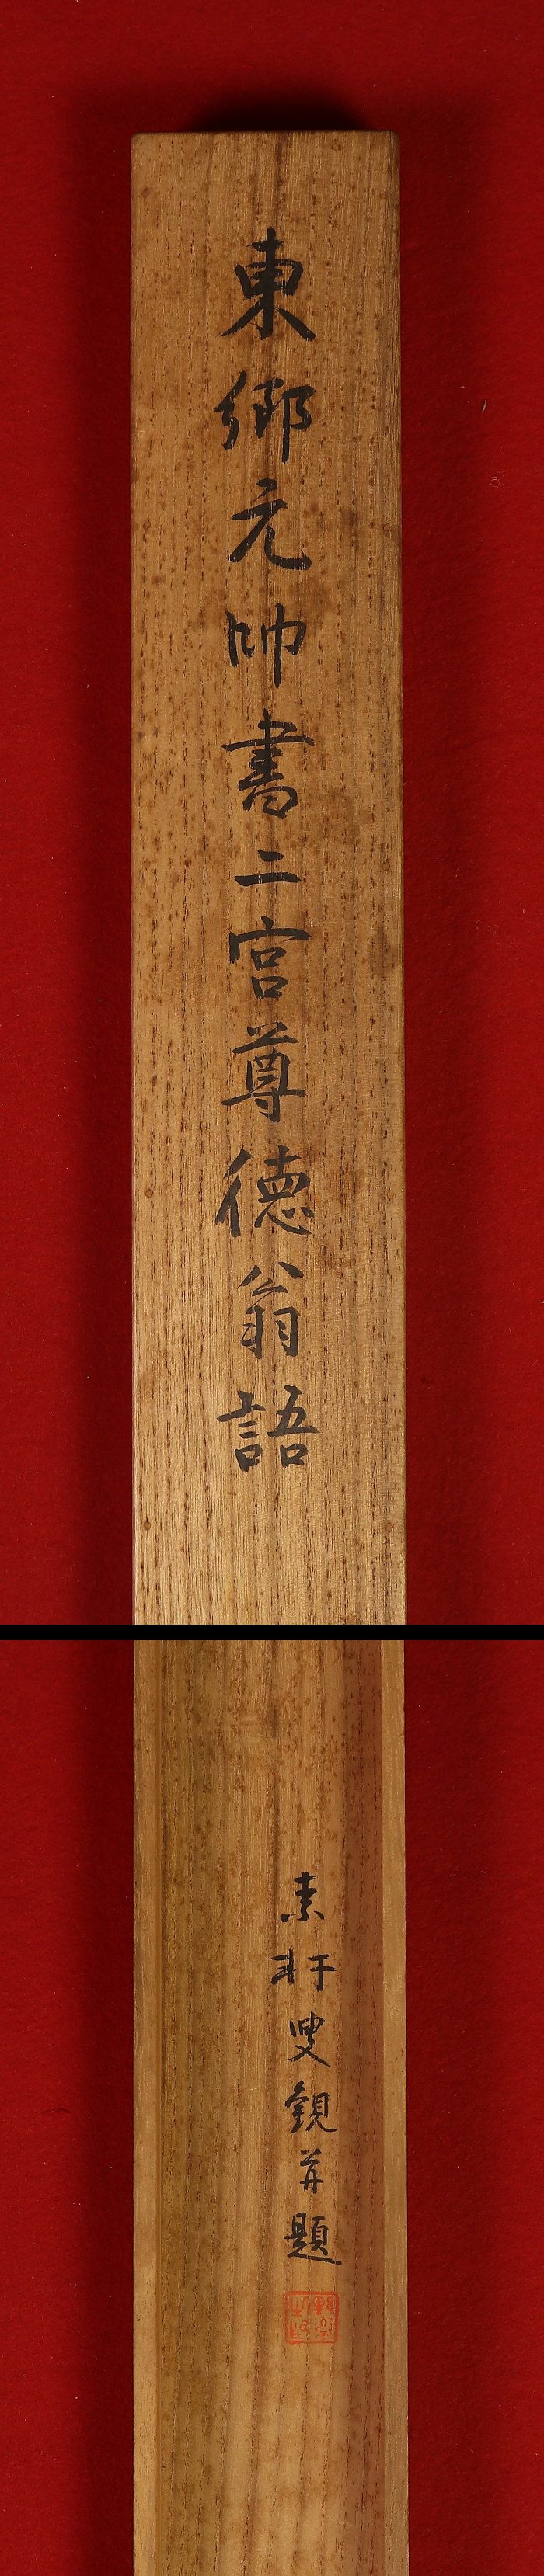 東郷元帥書二宮尊徳翁語
素軒叟観并題